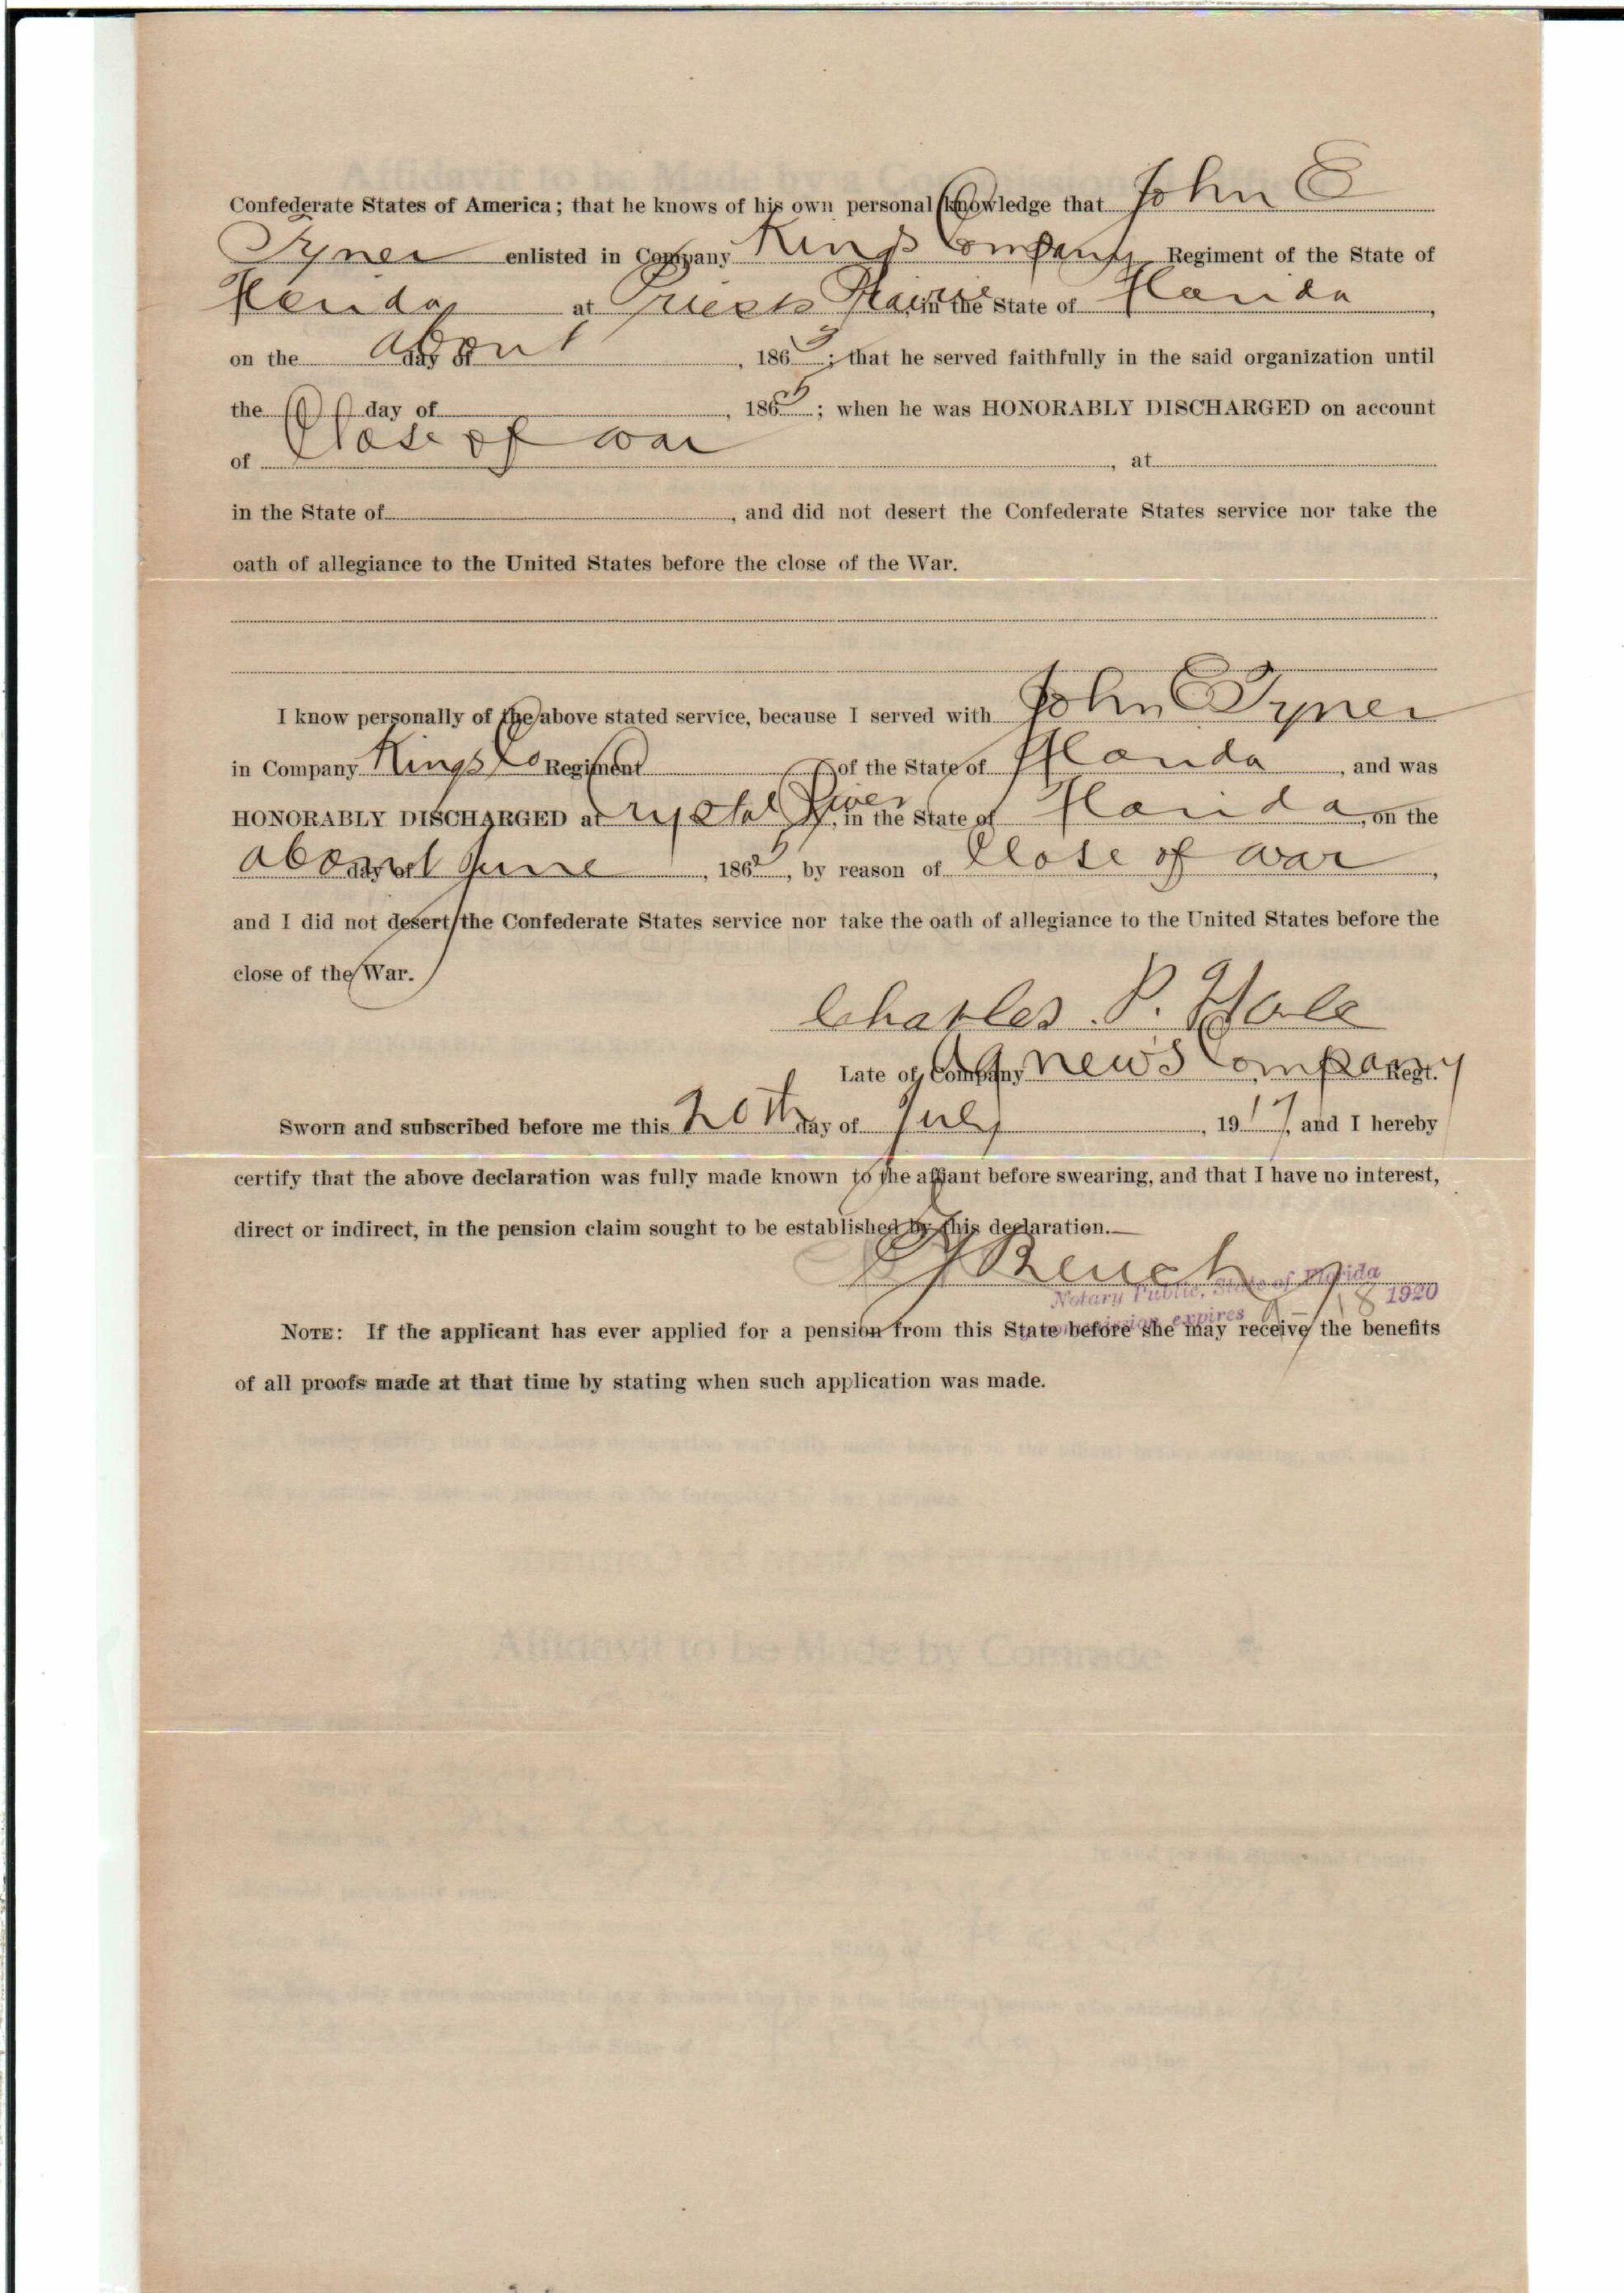 Confederate States of America; that he knows of his own personal knowledge that John E
Tyner enlisted in Company Kings Company Regiment of the State of
Florida at Priests Prairie, in the State of Florida,
on the about day of, 1863; that he served faithfully in the said organization until
the day of, 1865; when he was HONORABLY DISCHARGED on account
of Close of war, at
in the State of, and did not desert the Confederate States service nor take the
oath of allegiance to the United States before the close of the War.
I know personally of the above stated service, because I served with John E Tyner
in Company Kings Co Regiment of the State of Florida, and was
HONORABLY DISCHARGED at Crystal River, in the State of Florida, on the
about day of June, 1865, by reason of Close of war,
and I did not desert the Confederate States service nor take the oath of allegiance to the United States before the
close of the War.
Charles P. Hale
Late of Company Agnew's Company Regt.
Sworn and subscribed before me this 20th day of July, 1917, and I hereby
certify that the above declaration was fully made known to the affiant before swearing, and that I have no interest,
direct or indirect, in the pension claim sought to be established by this declaration.
Notary Public, State of Florida
commission expires 1920
NOTE: If the applicant has ever applied for a pension from this State before she may receive the benefits
of all proofs made at that time by stating when such application was made.
Affidavit to be Made by Comrade